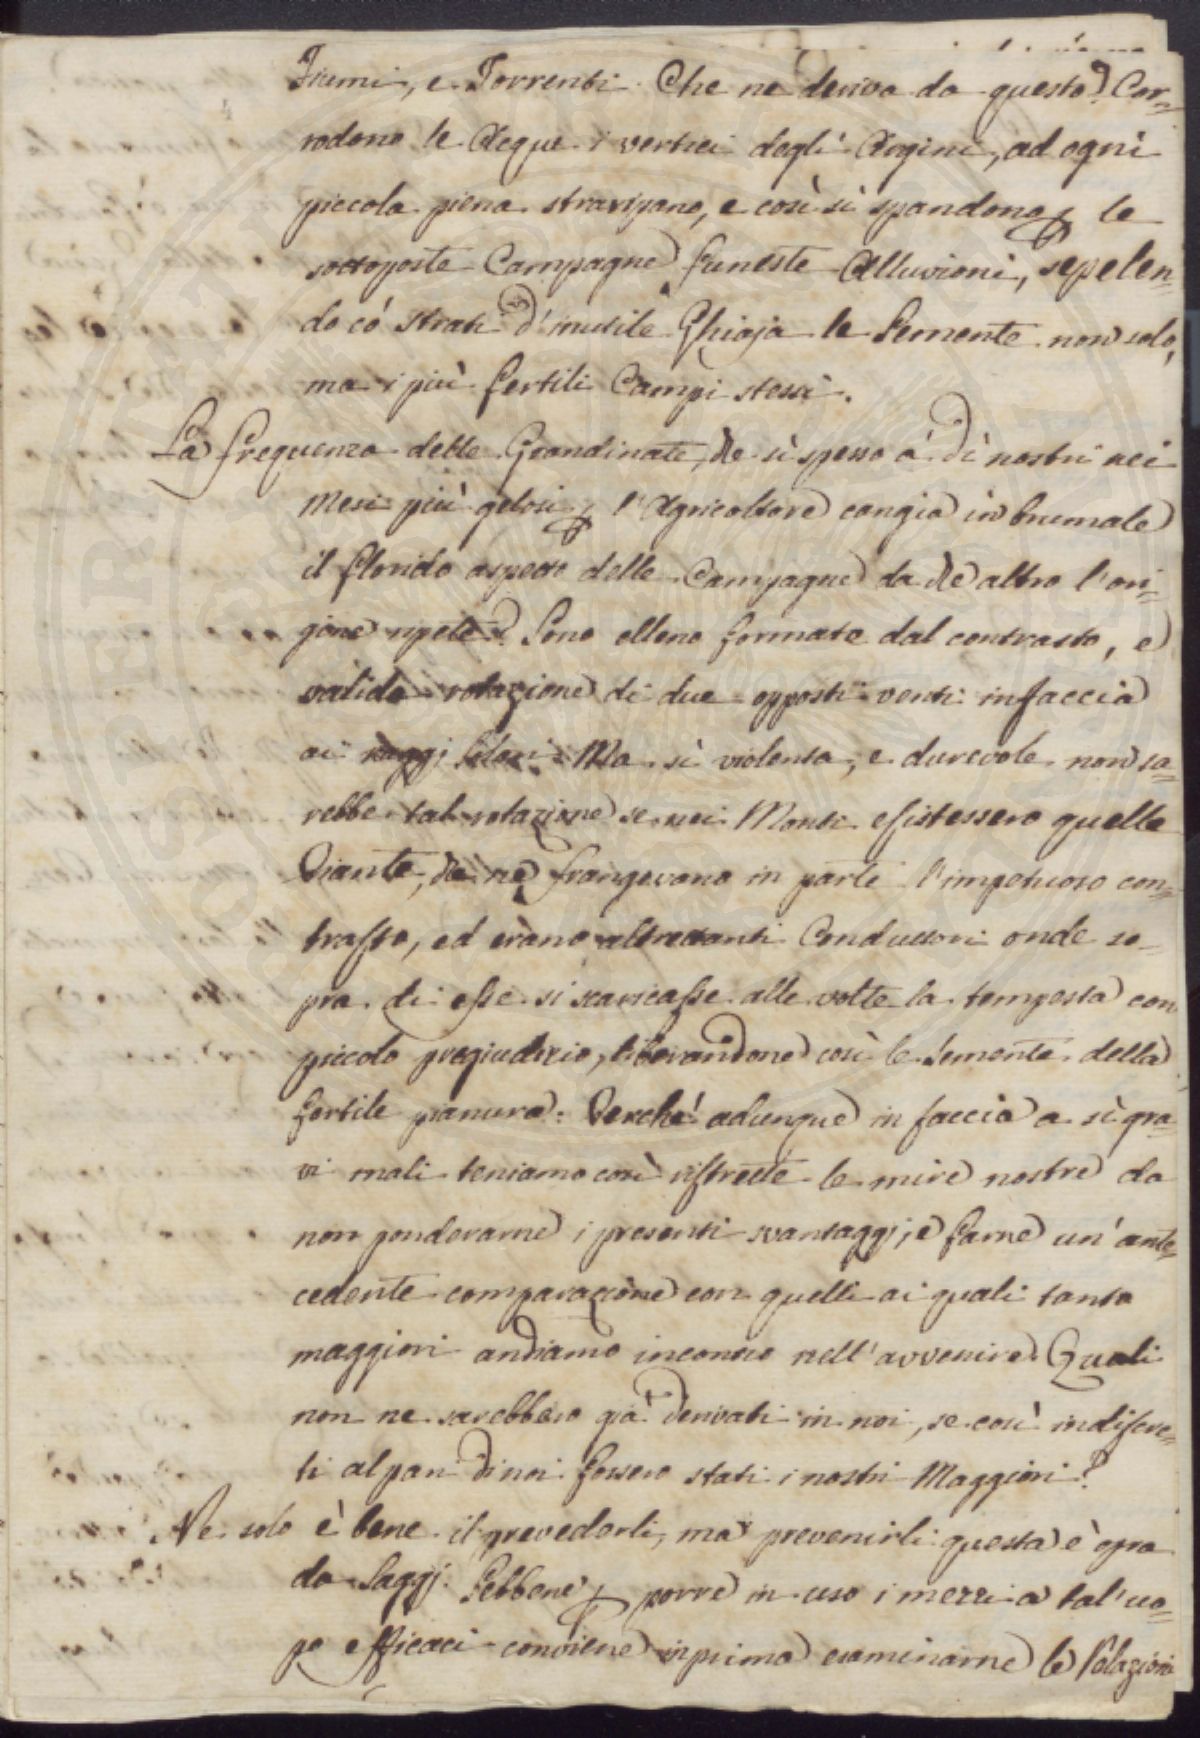 Fiumi, e Torrenti. Che ne deriva da questo? Cor=
rodono le Acque i vertici degli Argini, ad ogni
piccola piena stravizano, e così si spandono p le
sottoposte Campagne funeste Alluvioni, sepelen=
do có strati d'inutile Ghiaja le Semente non solo,
ma i più fertili Campi stessi.
La frequenza delle Grandinate, che sì spesso á dì nostri nei
Mesi più gelosi p l'Agricoltore cangia in brumale
il florido aspetto delle Campagne da che altro l'ori=
gine ripete? Sono elleno formate dal contrasto, e
valida rotazione di due opposti venti in faccia
ai raggj Solari. Ma sì violenta, e durevole non sa=
rebbe tal rotazione se nei Monti esistessero quelle
Piante, che ne frangevano in parte l'impetuoso con=
trasto, ed erano altrettanti Conduttori onde so=
pra di esse si scaricasse alle volte la tempesta con
piccolo pregiudizio, liberandone così le Semente della
fertile pianura. Perchè adunque in faccia a sì gra=
vi mali teniamo così ristrette le mire nostre da
non ponderarne i presenti svantaggj, e farne un'ante=
cedente comparazione con quelli ai quali tanto
maggiori andiamo incontro nell'avvenire. Quali
non ne sarebbero già derivati in noi, se così indiscre=
ti al pari di noi fossero stati i nostri Maggiori?
Ne solo è bene il prevederli, ma prevenirli: questa è opra
da Saggj. Sebbene p porre in uso i mezzi a tal'uo=
po efficaci conviene in prima esaminarne le